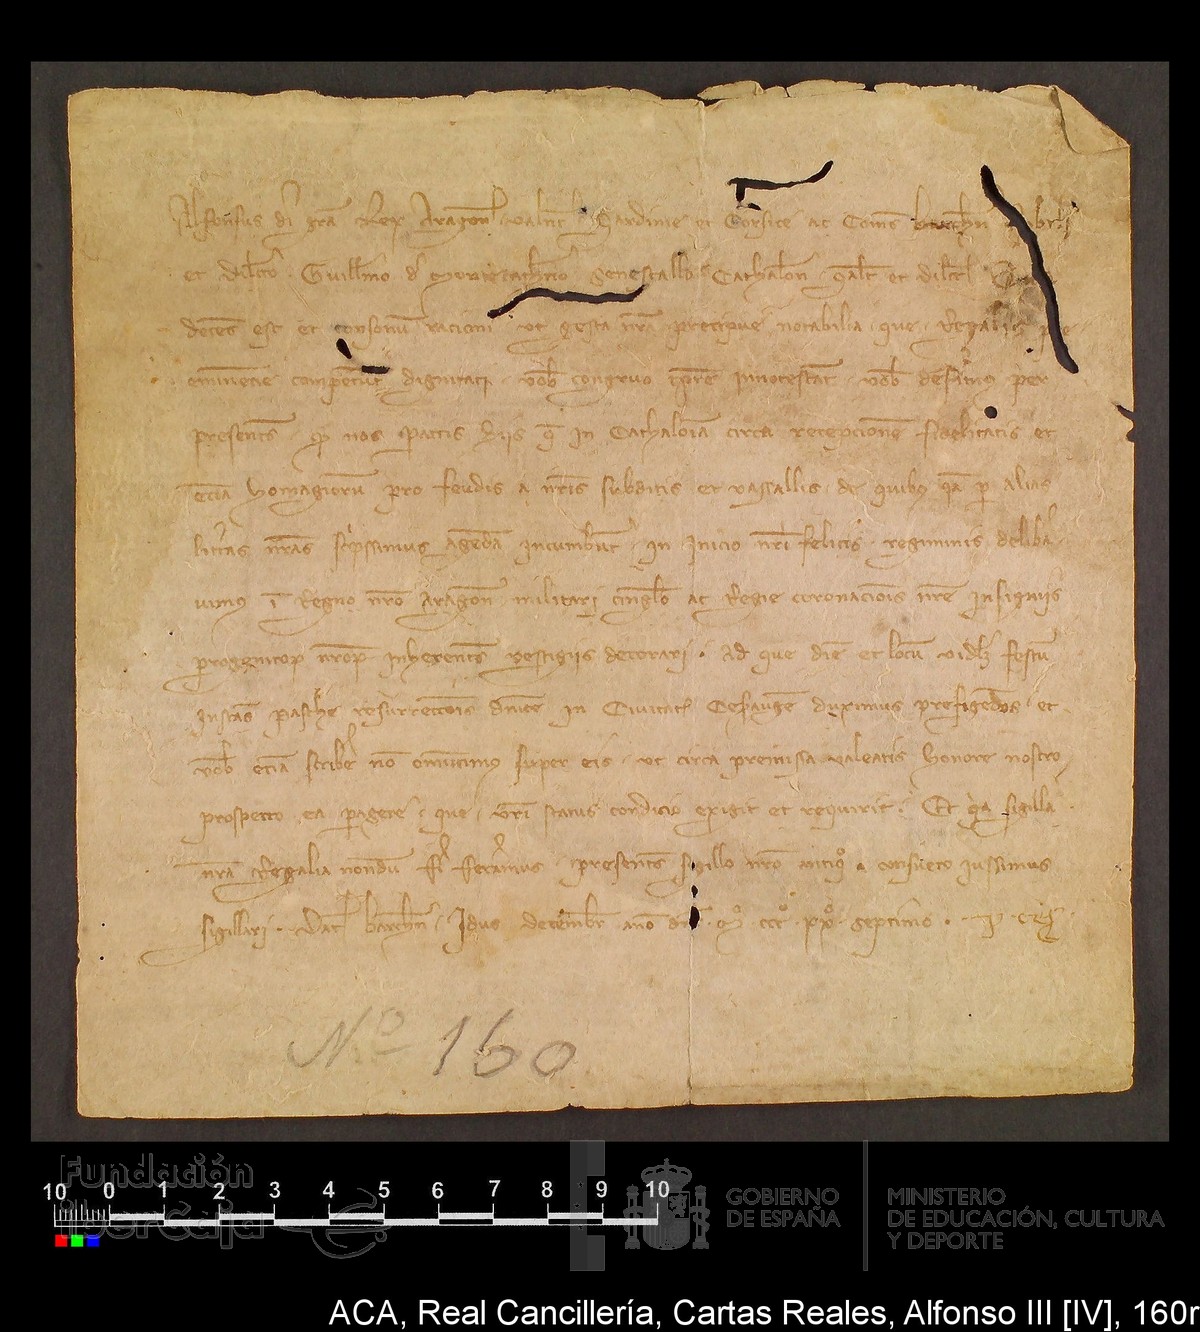 Alfonsus di gra Rex Aragon Valent Sardinie et Corsice ac Comes barchn
et dilcto Guillmo de Senescallo Cathalon salt et dilcc
decens est et consonum racioni ut gesta nra precipue notabilia que Regalis pre
eminencie dignitati vob congruo tpre innotescat vob desinim per
presentes qd nos pactis hiis q in Cathalonia circa recepcione fidelitatis et
eciam homagiorum pro feudis a nris subditis et vassallis de quibus per alias
litteras nras scripsimus agenda incumbut in inicio nri felicis regiminis deliba
vimus i Regno nro Aragon militari cinglo ac Regie coronacois nre insigniis
progenitor nror inherentes vestigiis decorari. Ad que die et locu vidlz festu
instas pasche resurreccois dnice in Civitate Cesaugue duximus prefigedos et
vob eciam scribe no omittimus super eis ut circa premissa valeatis honore nostro
prospecto ea pagere que vri status condicio exigit et requirit. Et qa sigilla
nra Regalia nondu presentes sigillo nro antiquo consueto iussimus
sigillari. Dat barchn Idus decembr ano dni mo ccco xxo septimo.
No 160
10 0 1 2 3 4 5 6 7 8 9 10
Fundación
iberCaja
GOBIERNO
DE ESPAÑA
MINISTERIO
DE EDUCACIÓN, CULTURA
Y DEPORTE
ACA, Real Cancillería, Cartas Reales, Alfonso III [IV], 160r